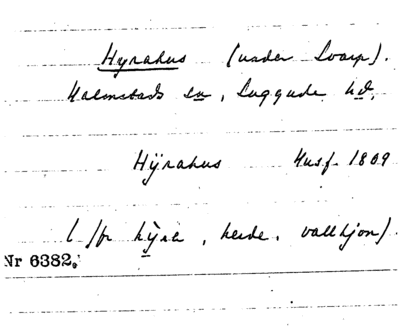 Hyrahus (under Svarp).
Halmstads sn, Luggude hd,
Hÿrahus Husf. 1809
( /fr hÿra, herde, vallhjon)
Nr 6382.